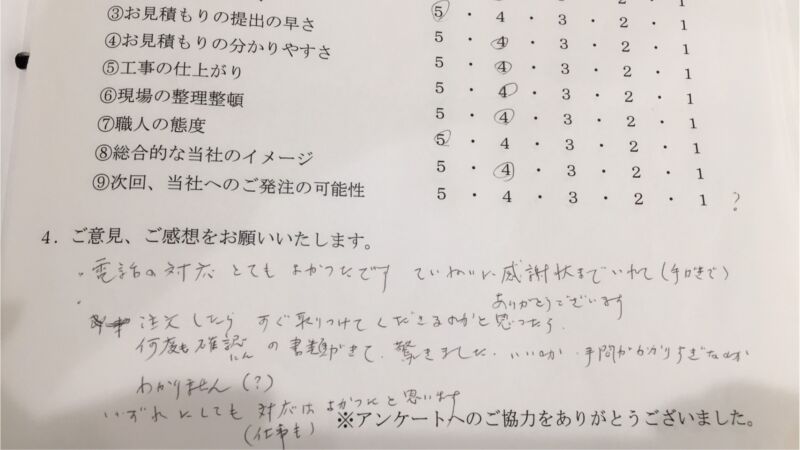 ③お見積もりの提出の早さ 5 ・ 4 ・ 3 ・ 2 ・ 1
④お見積もりの分かりやすさ 5 ・ 4 ・ 3 ・ 2 ・ 1
⑤工事の仕上がり 5 ・ 4 ・ 3 ・ 2 ・ 1
⑥現場の整理整頓 5 ・ 4 ・ 3 ・ 2 ・ 1
⑦職人の態度 5 ・ 4 ・ 3 ・ 2 ・ 1
⑧総合的な当社のイメージ 5 ・ 4 ・ 3 ・ 2 ・ 1
⑨次回、当社へのご発注の可能性 5 ・ 4 ・ 3 ・ 2 ・ 1 ?
4．ご意見、ご感想をお願いいたします。
・電話の対応 とてもよかったです ていねいに感謝状までいれて(手がきで)
ありがとうございます
注文したら すぐ取りつけてくださるのかと思ったら、
何度も確認にんの書類がきて、驚きました。いいのか 手間がかかりすぎなのか
わかりません(?)
いずれにしても 対応はよかったと思います
(仕事も)
※アンケートへのご協力をありがとうございました。